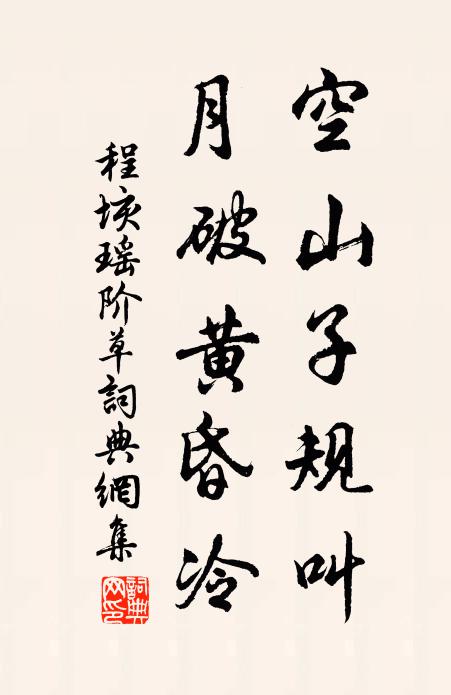 空山子规叫
月破黄昏冷
程垓瑶阶草詞典網集
詞典網印